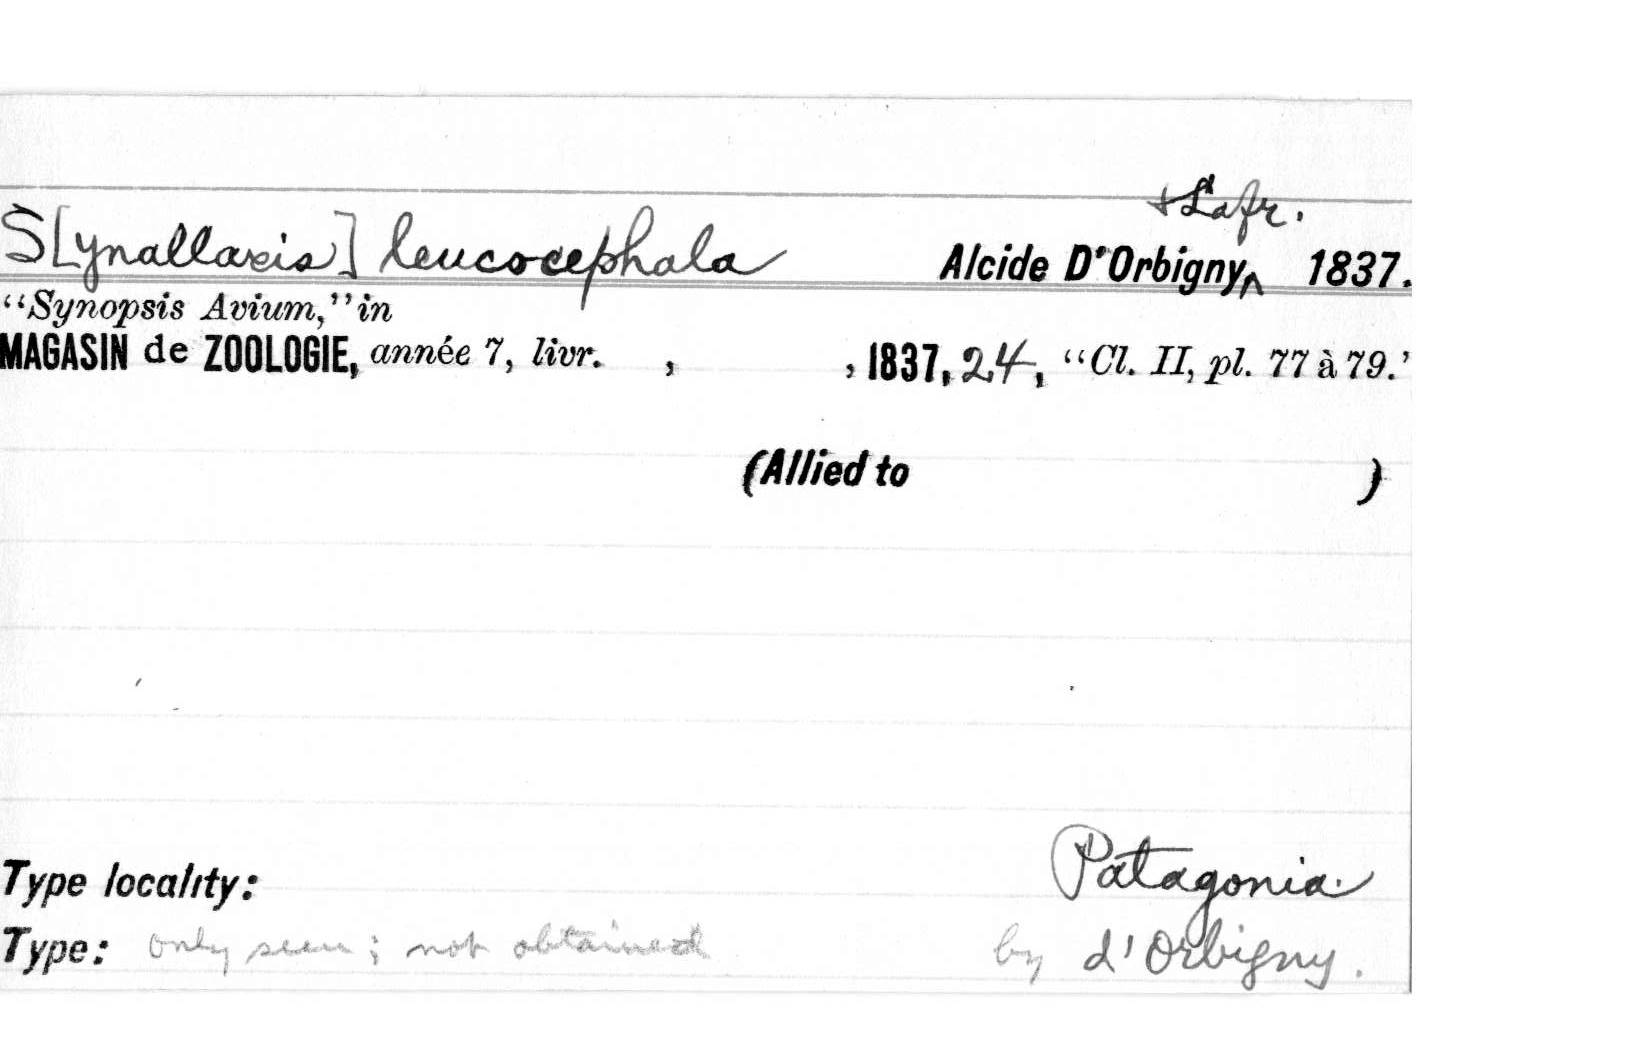 & Lafr.
S[ynallaxis] leucocephala Alcide D'Orbigny, ^ 1837.
“Synopsis Avium,” in
MAGASIN de ZOOLOGIE, année 7, livr. , , 1837, 24, “Cl. II, pl. 77 à 79.’
(Allied to )
Type locality: Patagonia.
Type: only seen; not obtained by d'Orbigny.